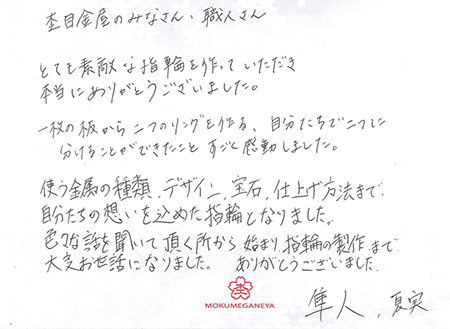 杢目金屋のみなさん、職人さん
とても素敵な指輪を作っていただき
本当にありがとうございました。
一枚の板から二つのリングを作る、自分たちで二つに
分けることができたこと すごく感動しました。
使う金属の種類、デザイン、宝石、仕上げ方法まで
自分たちの想いを込めた指輪となりました。
色々な話を聞いて頂く所から始まり、指輪の製作まで
大変お世話になりました。 ありがとうございました。
MOKUMEGANEYA
隼人、夏実